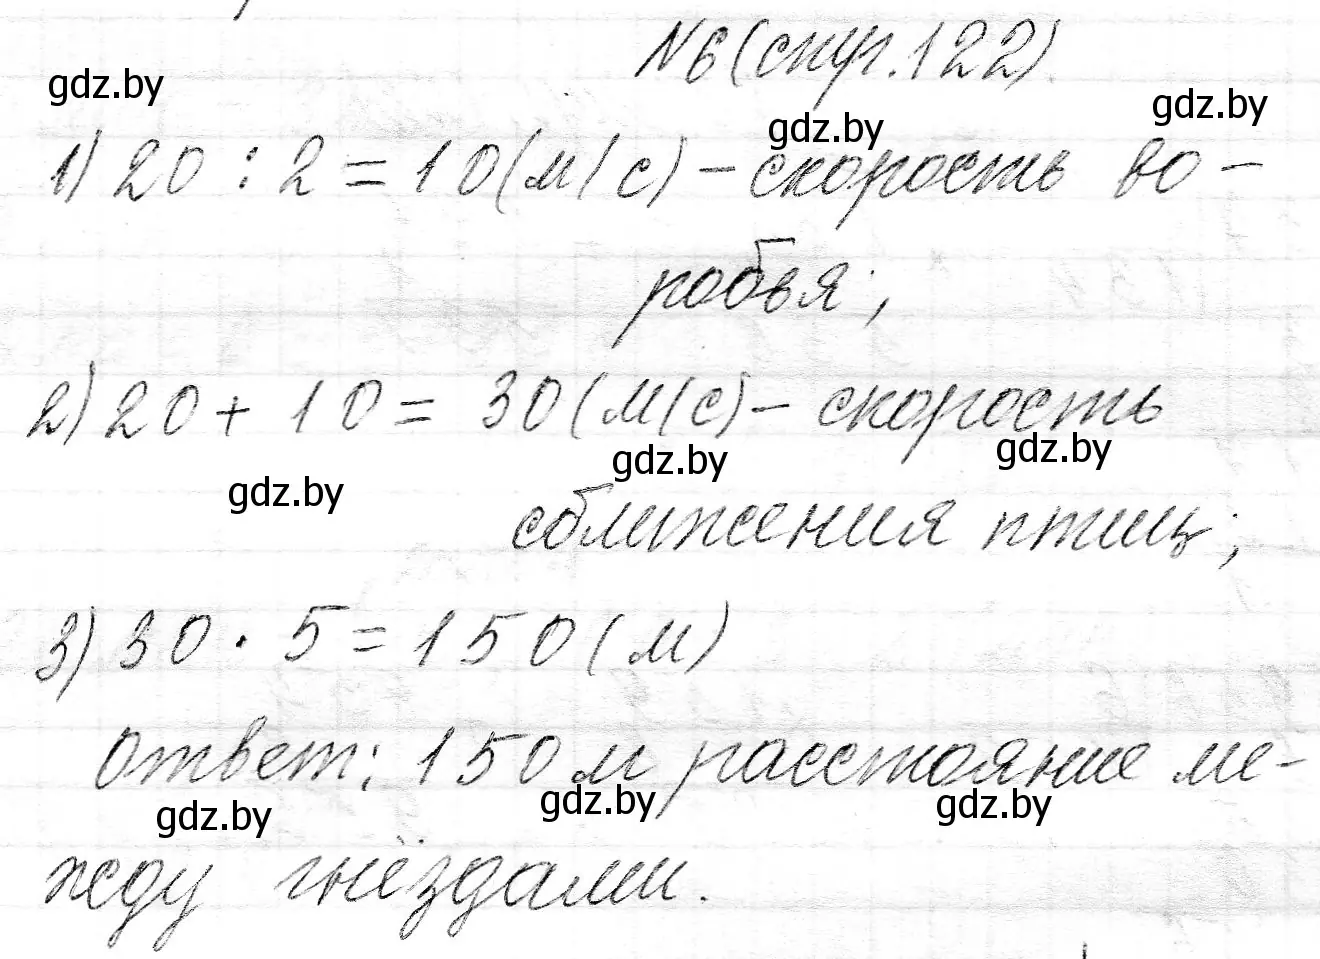 №6(стр.122).
gdz.by
gdz.by
gdz.by
1) 20 : 2 = 10(м/с) – скорость во-
робья;
2) 20 + 10 = 30(м/с) – скорость
gdz.by
gdz.by
gdz.by
сближения птиц;
3) 30 · 5 = 150 (м)
Ответ: 150 м расстояние ме-
gdz.by
gdz.by
gdz.by
жду гнёздами.